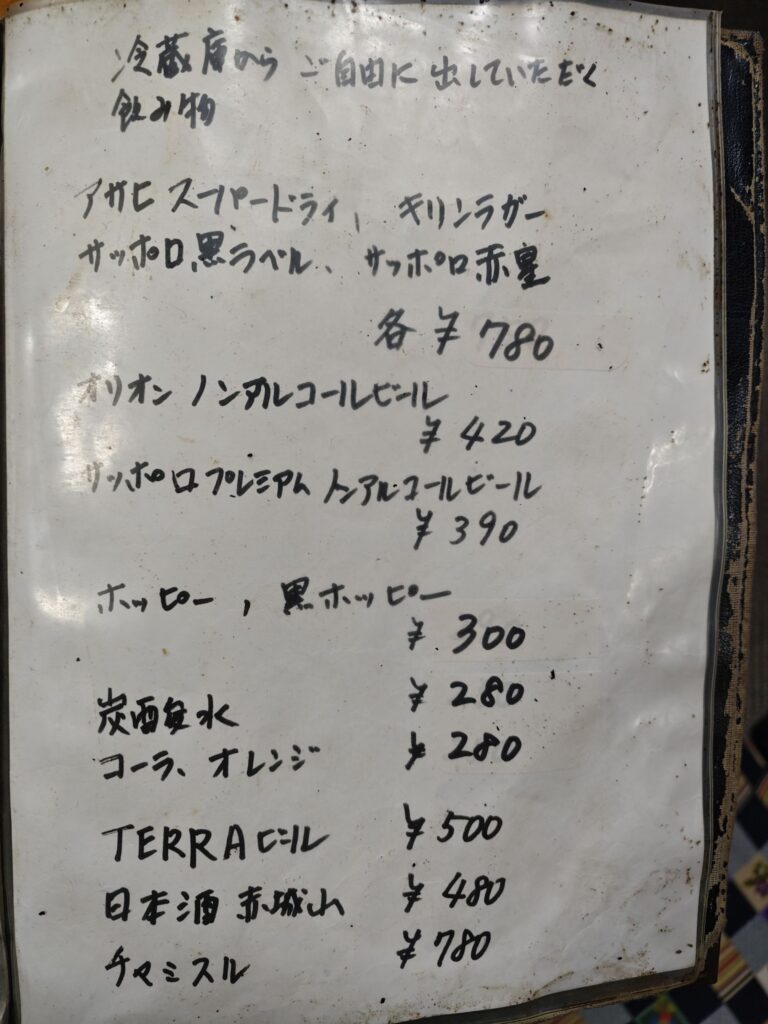 冷蔵庫から ご自由に出していただく
飲み物
アサヒ スーパードライ、 キリンラガー
サッポロ黒ラベル、 サッポロ赤星
各 ¥780
オリオン ノンアルコールビール
¥420
サッポロプレミアム ノンアルコールビール
¥390
ホッピー , 黒ホッピー
¥300
炭酸水 ¥280
コーラ、オレンジ ¥280
TERRAビール ¥500
日本酒 赤城山 ¥480
チャミスル ¥780